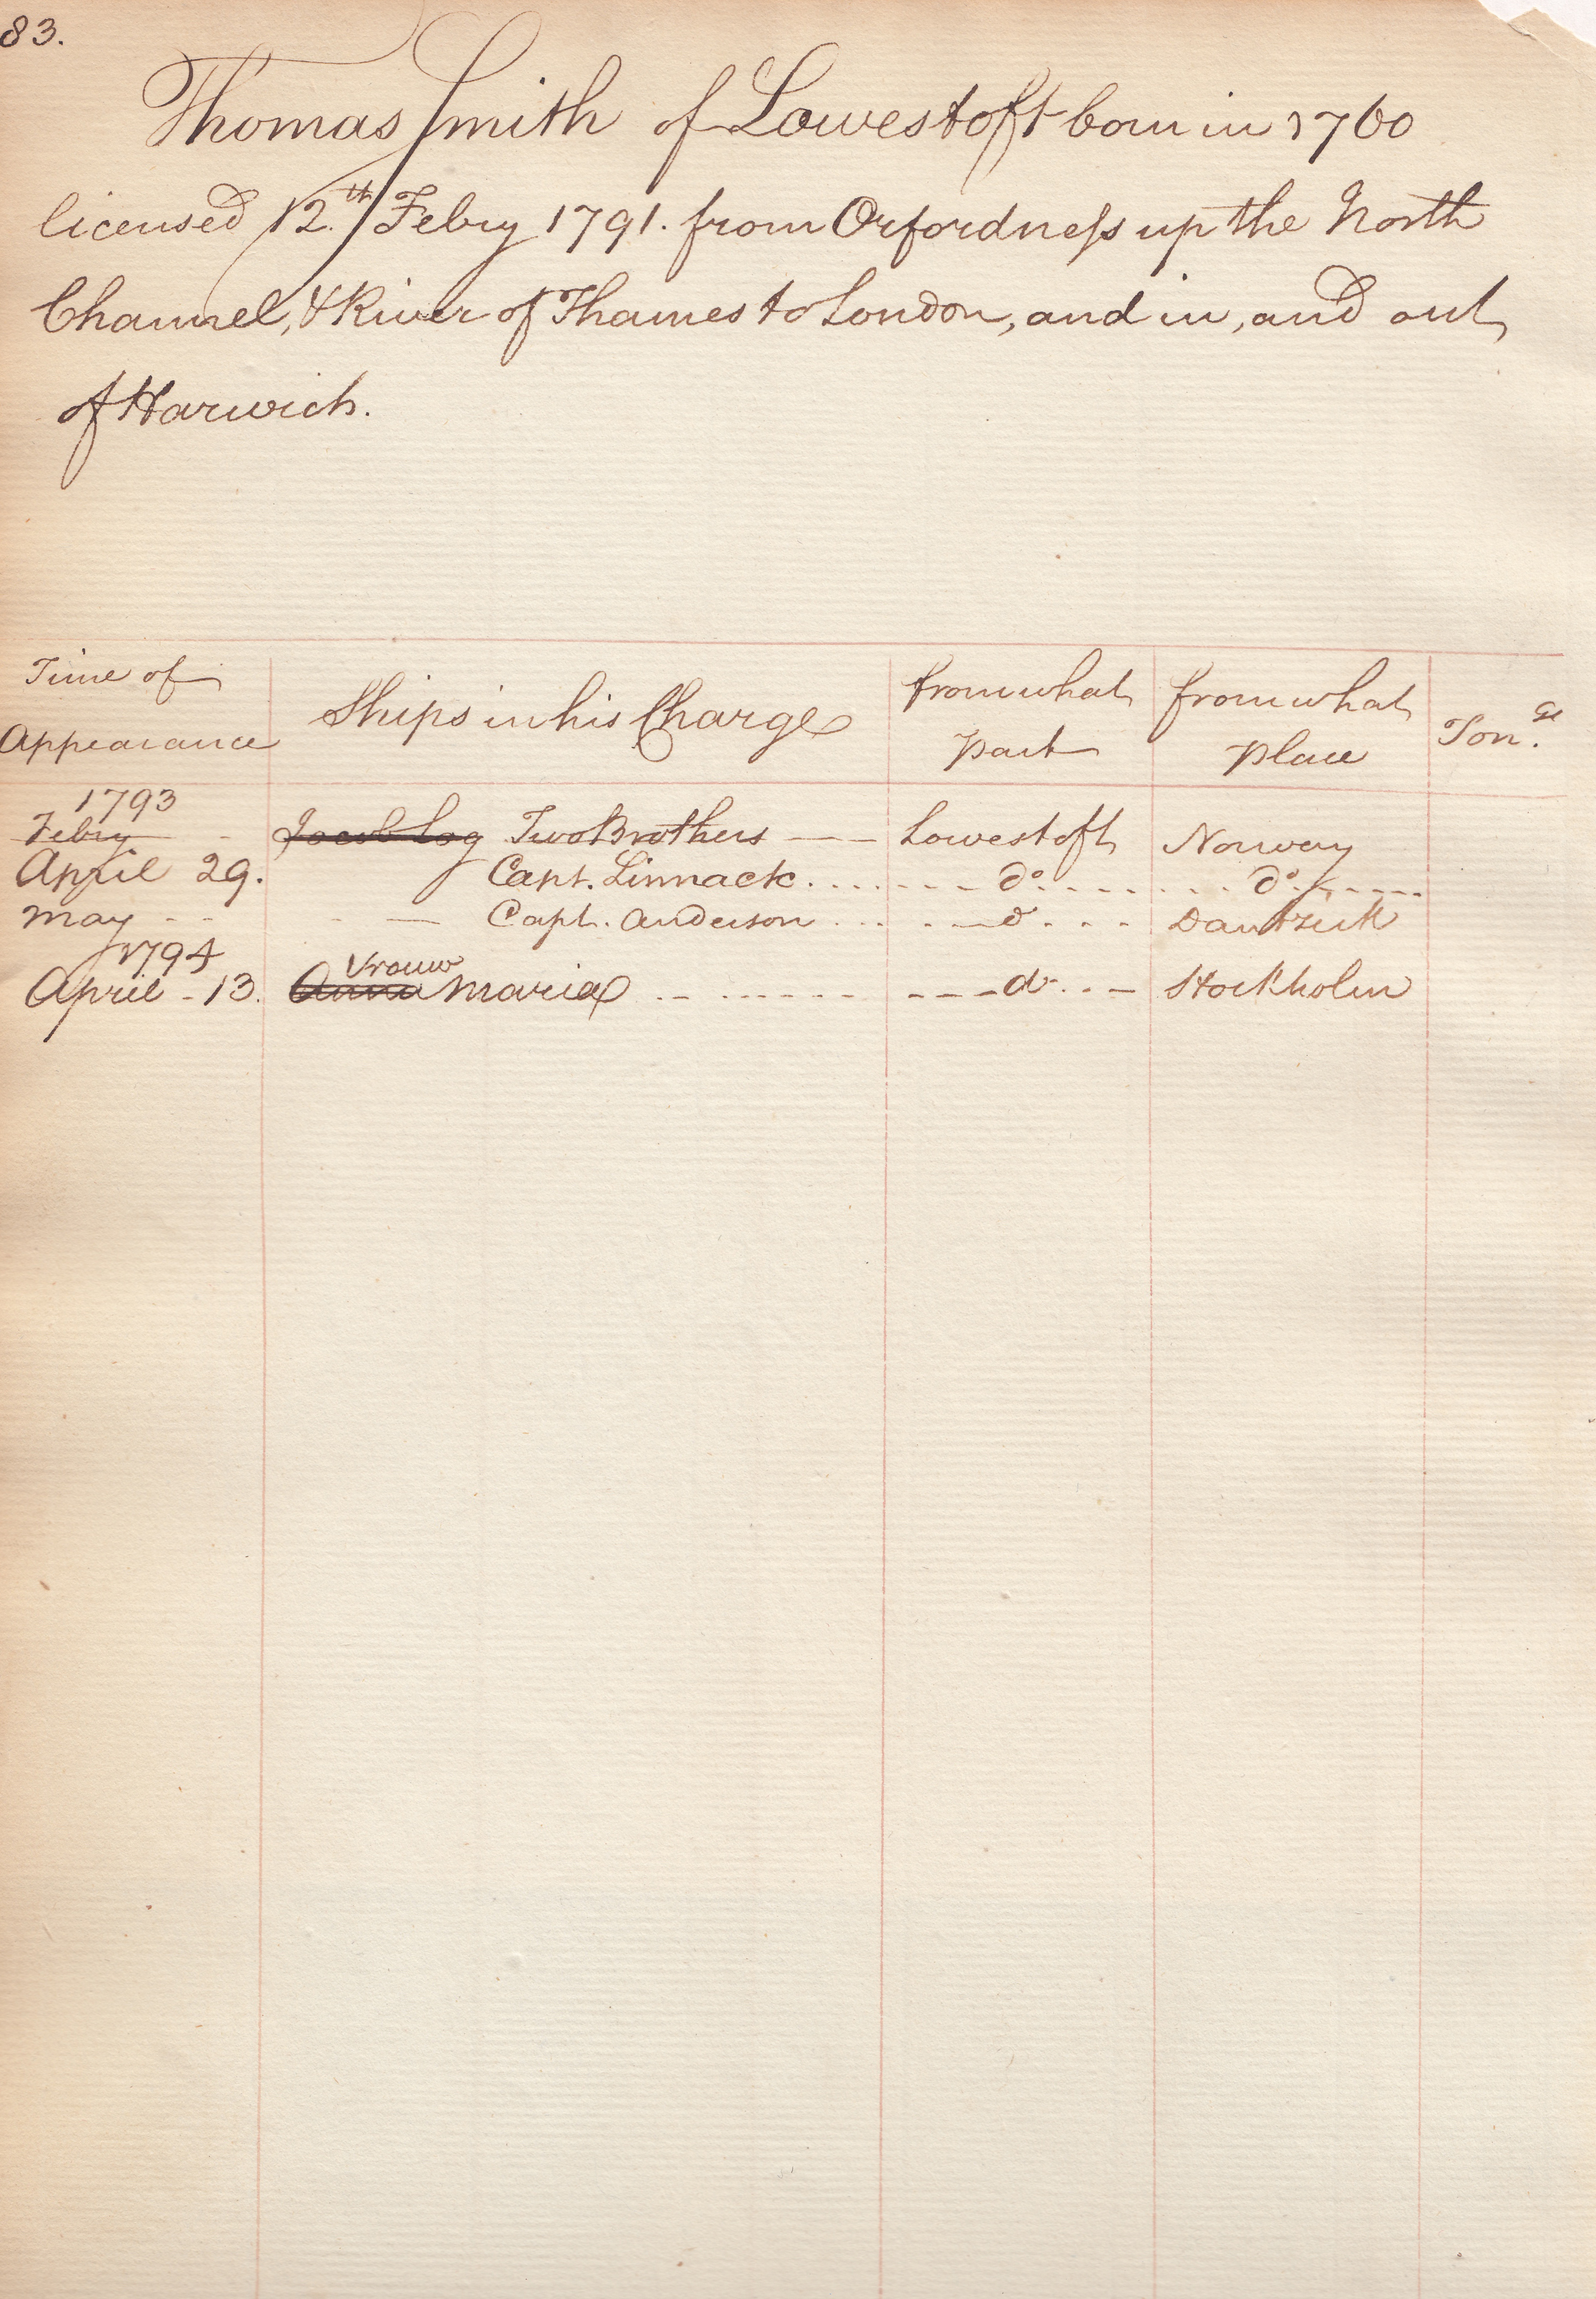 83.
Thomas Smith of Lowestoft born in 1760
licensed 12.th Febry 1791. from Orfordness up the North
Channel, & River of Thames to London, and in, and out
of Harwich.
Time of Appearance Ships in his Charge from what part from what place Ton.ge
1793
Febry - Two Brothers — Lowestoft Norway
April 29. Capt. Linnack. . . . . . . . do. . . . . . . . do. . . . .
May - - - — Capt. Anderson . . . . . . do . . . Dantzick
1794
Vrouw
April - 13. Anna Maria . . . . . . . . . do . . — Stockholm